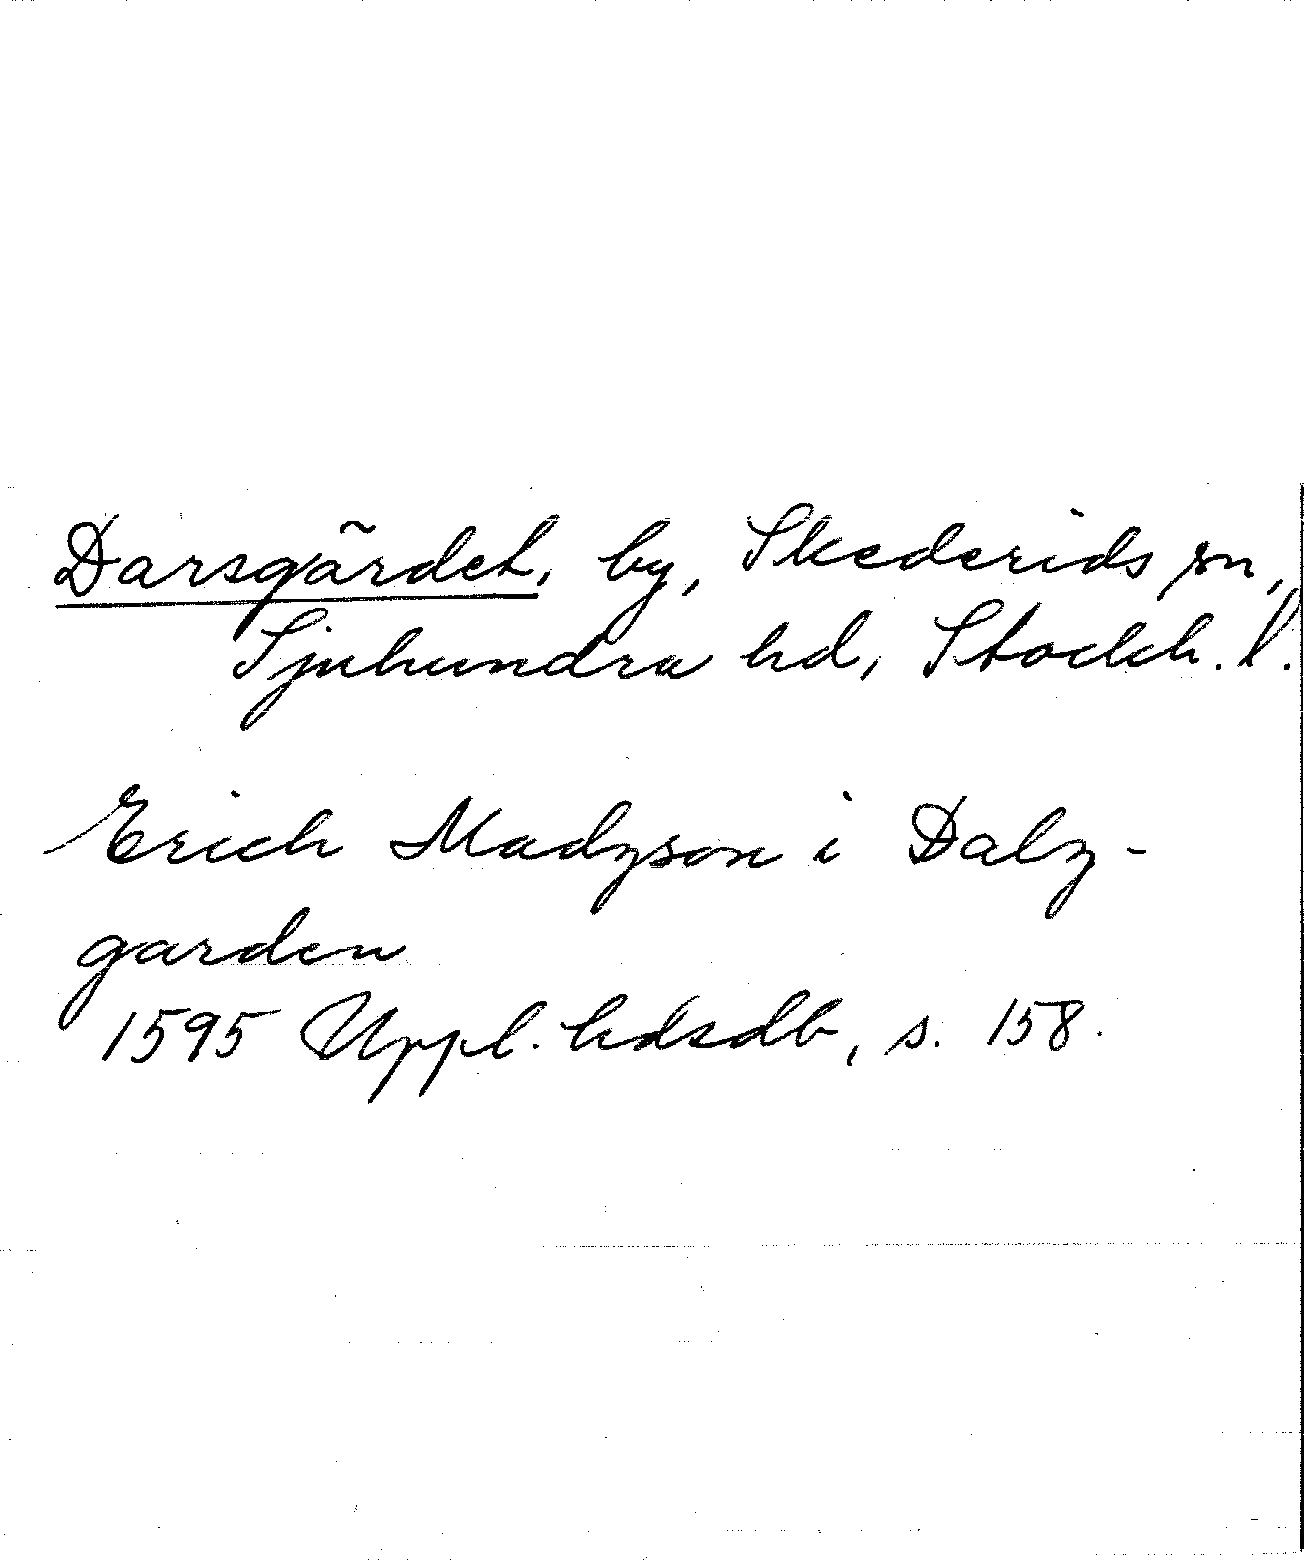 Darsgärdet, by, Skederids sn,
Sjuhundra hd, Stockh. l.
Erich Madzson i Dalz-
garden
1595 Uppl. hdsdb, s. 158.